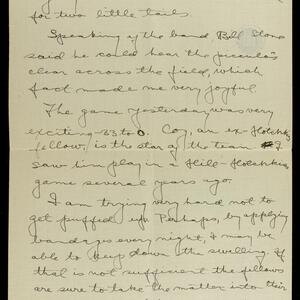 for two little tails.
Speaking of the band Bill Stone
said he could hear the piccolo
clear across the field, which
fact made me very joyful.
The game yesterday was very
exciting - 33 to 0. Coy, an ex-Hotchkiss
fellow, is the star of the team. I
saw him play in a Hill-Hotchkiss
game several years ago.
I am trying very hard not to
get puffed up. Perhaps, by applying
bandages every night, I may be
able to keep down the swelling. If
that is not sufficient the fellows
are sure to take the matter into their